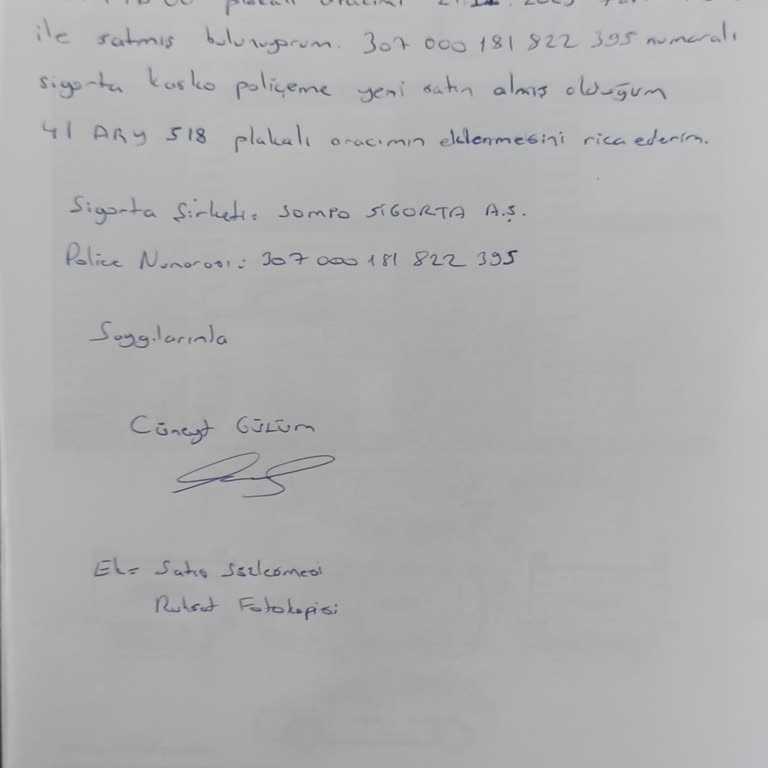 plakalı aracımı
ile satmış bulunuyorum. 307 000 181 822 395 numaralı
sigorta kasko poliçeme yeni satın almış olduğum
41 ARY 518 plakalı aracımın eklenmesini rica ederim.
Sigorta Şirketi: SOMPO SİGORTA A.Ş.
Police Numarası: 307 000 181 822 395
Saygılarımla
Cüneyt GÜLÜM
Ek= Satış Sözleşmesi
Ruhsat Fotokopisi